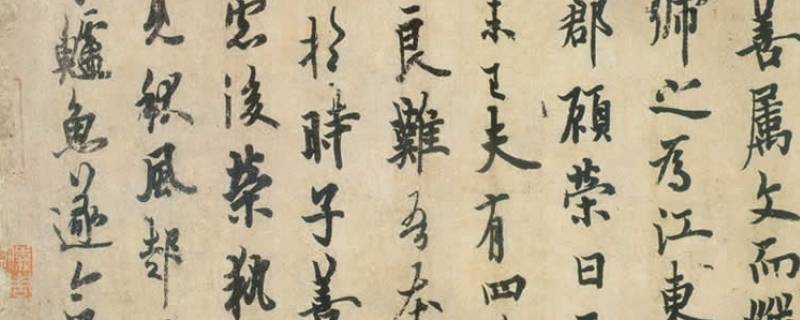 善屬文而縱
號之為江東
郡顧榮曰
未已夫有四
良難吾本
於時子善
慮後榮執
見秋風起
鱸魚遂命